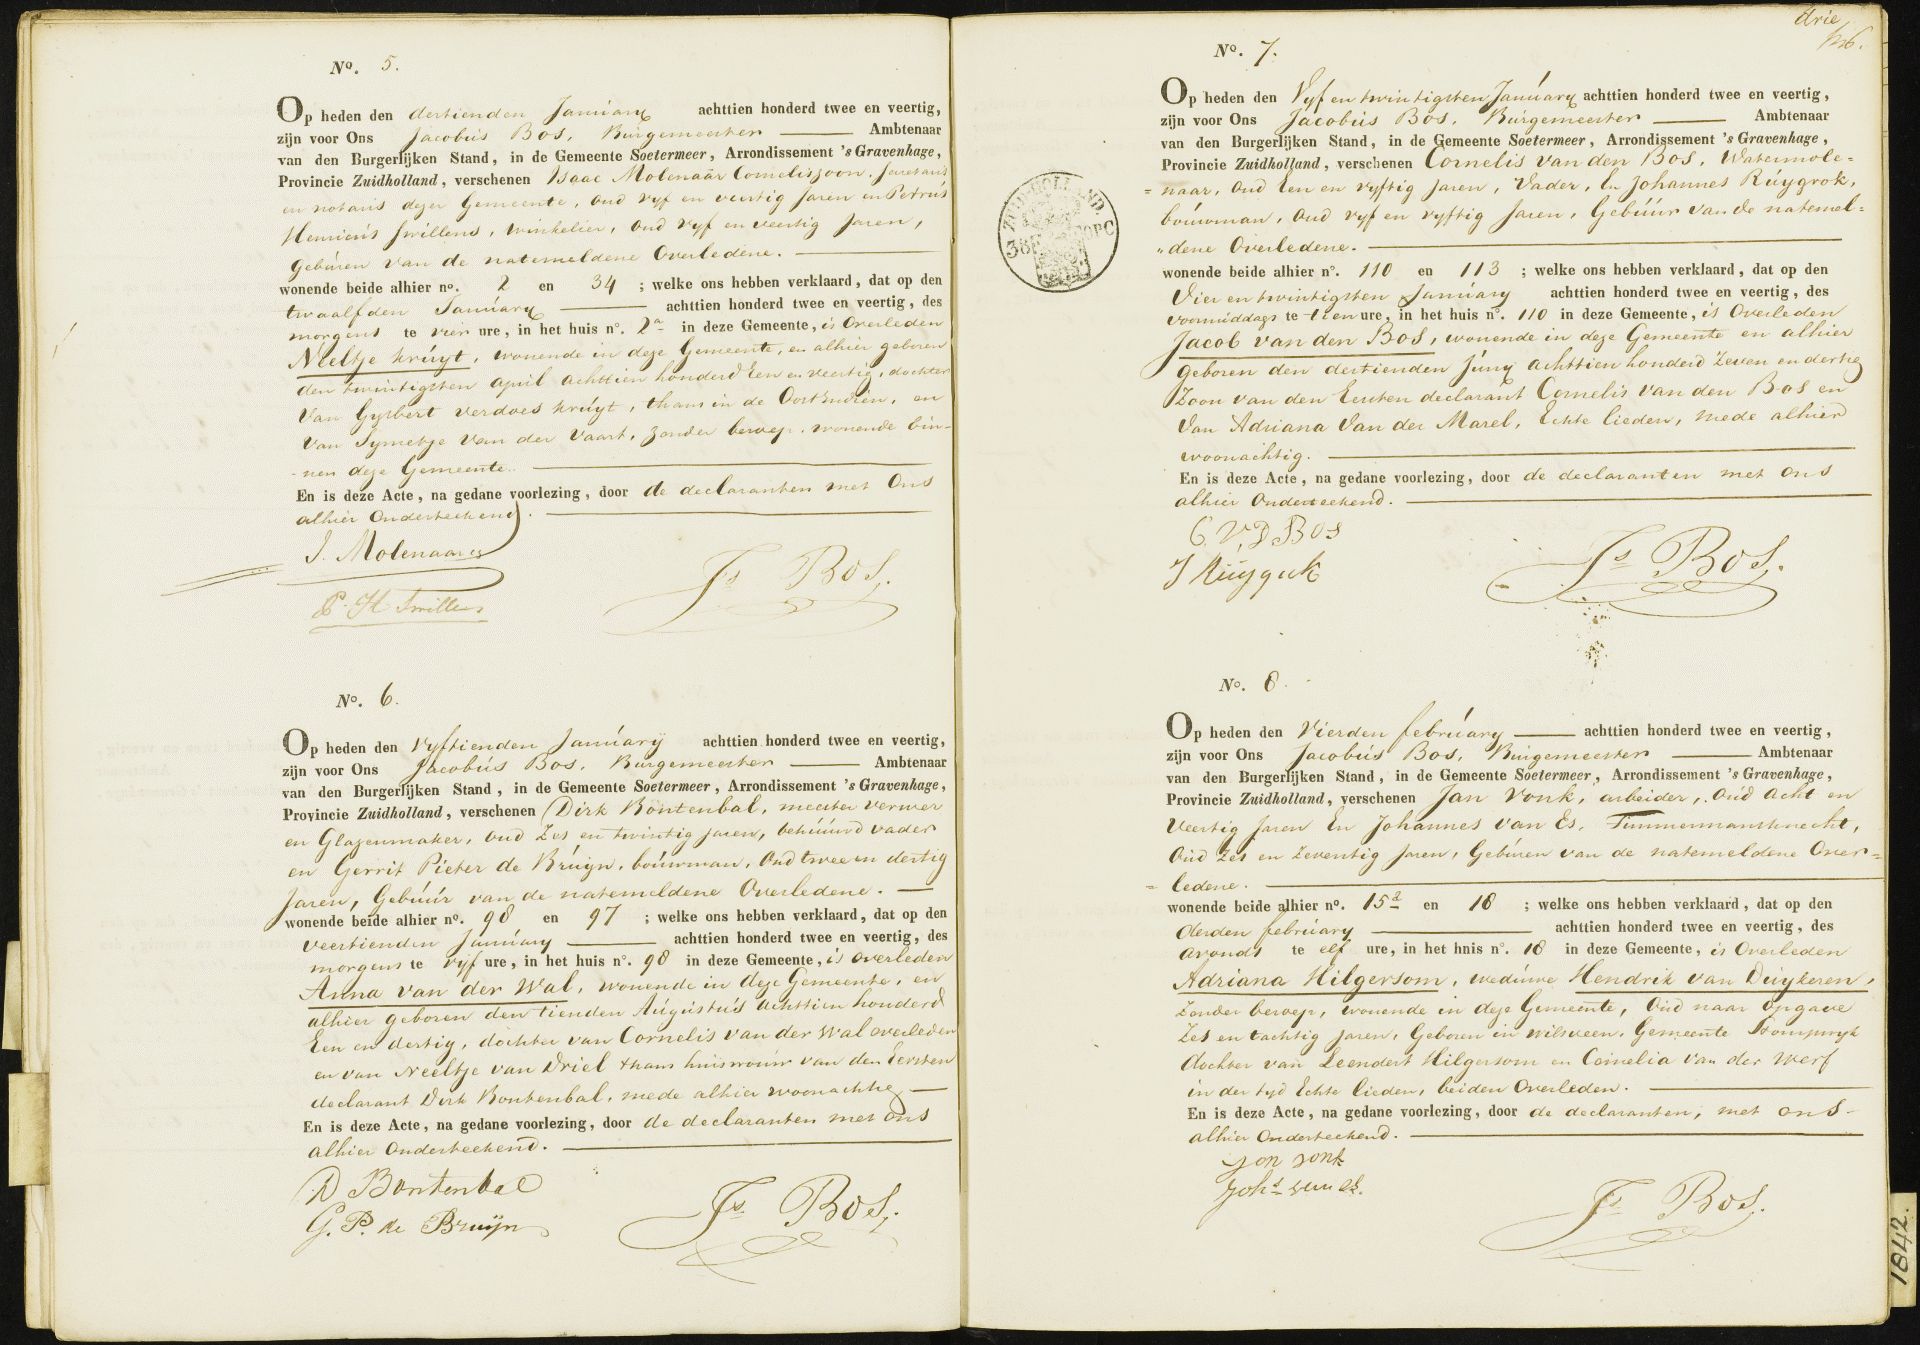 No. 5.
Op heden den dertienden January achttien honderd twee en veertig,
zijn voor Ons Jacobus Bos, Burgemeester Ambtenaar
van den Burgerlijken Stand, in de Gemeente Soetermeer, Arrondissement 's Gravenhage,
Provincie Zuidholland, verschenen Isaac Molenaar Corneliszoon, Secretaris
en notaris dezer Gemeente, oud vyf en veertig Jaren en Petrus
Henricus Swillens, winkelier, oud vyf en veertig Jaren,
Geburen van de natemeldene Overledene.
wonende beide alhier no. 2 en 34 ; welke ons hebben verklaard, dat op den
twaalfden January achttien honderd twee en veertig, des
morgens te vier ure, in het huis no. 2a in deze Gemeente, is Overleden
Neeltje Kruyt, wonende in deze Gemeente, en alhier geboren
den twintigsten april achttien honderd Een en veertig, dochter
Van Gysbert Verdoes Kruyt, thans in de OostIndien, en
Van Symetje van der Vaart, zonder beroep, wonende bin-
-nen deze Gemeente.
En is deze Acte, na gedane voorlezing, door de declaranten met Ons
alhier Onderteekend.
I. Molenaar Cz
P. H. Swillens
Js Bos.
No. 6.
Op heden den Vyftienden January achttien honderd twee en veertig,
zijn voor Ons Jacobus Bos, Burgemeester Ambtenaar
van den Burgerlijken Stand, in de Gemeente Soetermeer, Arrondissement 's Gravenhage,
Provincie Zuidholland, verschenen Dirk Bontenbal, meester verwer
en Glazenmaker, oud Zes en twintig jaren, behuuwd vader
en Gerrit Pieter de Bruyn, bouwman, Oud twee en dertig
Jaren, Gebuur van de natemeldene Overledene.
wonende beide alhier no. 98 en 97 ; welke ons hebben verklaard, dat op den
veertienden January achttien honderd twee en veertig, des
morgens te vyf ure, in het huis no. 98 in deze Gemeente, is overleden
Anna van der Wal, wonende in deze Gemeente, en
alhier geboren den tienden Augustus achttien honderd
Een en dertig, dochter van Cornelis van der Wal overleden
en van Neeltje van Driel thans huisvrouw van den Eersten
declarant Dirk Bontenbal, mede alhier woonachtig
En is deze Acte, na gedane voorlezing, door de declaranten met ons
alhier Onderteekend.
D Bontenbal
G. P. de Bruijn
Js Bos.
drie
No. 7.
Op heden den Vyf en twintigsten January achttien honderd twee en veertig,
zijn voor Ons Jacobus Bos, Burgemeester Ambtenaar
van den Burgerlijken Stand, in de Gemeente Soetermeer, Arrondissement 's Gravenhage,
Provincie Zuidholland, verschenen Cornelis van den Bos, Watermole=
=naar, oud Een en vyftig Jaren, Vader, En Johannes Ruygrok,
bouwman, oud vyf en vyftig Jaren, Gebuur van de natemel=
„dene Overledene.
wonende beide alhier no. 110 en 113 ; welke ons hebben verklaard, dat op den
Vier en twintigsten January achttien honderd twee en veertig, des
voormiddags te tien ure, in het huis no. 110 in deze Gemeente, is Overleden
Jacob van den Bos, wonende in deze Gemeente en alhier
geboren den dertienden Juny achttien honderd Zeven en dertig
Zoon van den Eersten declarant Cornelis van den Bos en
Van Adriana Van der Marel, Echte lieden, mede alhier
woonachtig.
En is deze Acte, na gedane voorlezing, door de declaranten met ons
alhier Onderteekend.
C. V. D Bos
J Ruygrok
Js Bos.
No. 8.
Op heden den Vierden february achttien honderd twee en veertig,
zijn voor Ons Jacobus Bos, Burgemeester Ambtenaar
van den Burgerlijken Stand, in de Gemeente Soetermeer, Arrondissement 's Gravenhage,
Provincie Zuidholland, verschenen Jan Vonk, arbeider, Oud Acht en
Veertig Jaren En Johannes van Es, Timmermansknecht,
Oud Zes en Zeventig Jaren, Geburen van de natemeldene Over=
=ledene.
wonende beide alhier no. 15d en 18 ; welke ons hebben verklaard, dat op den
derden february achttien honderd twee en veertig, des
avonds te elf ure, in het huis no. 18 in deze Gemeente, is Overleden
Adriana Hilgersom, weduwe Hendrik van Duykeren,
Zonder beroep, wonende in deze Gemeente, Oud naar opgave
Zes en tachtig Jaren, Geboren in Wilsveen, Gemeente Stompwyk
dochter van Leendert Hilgersom en Cornelia van der Werf
in der tyd Echte lieden, beiden Overleden.
En is deze Acte, na gedane voorlezing, door de declaranten, met ons
alhier Onderteekend.
Jan Vonk
Johs van Es.
Js Bos.
1842.